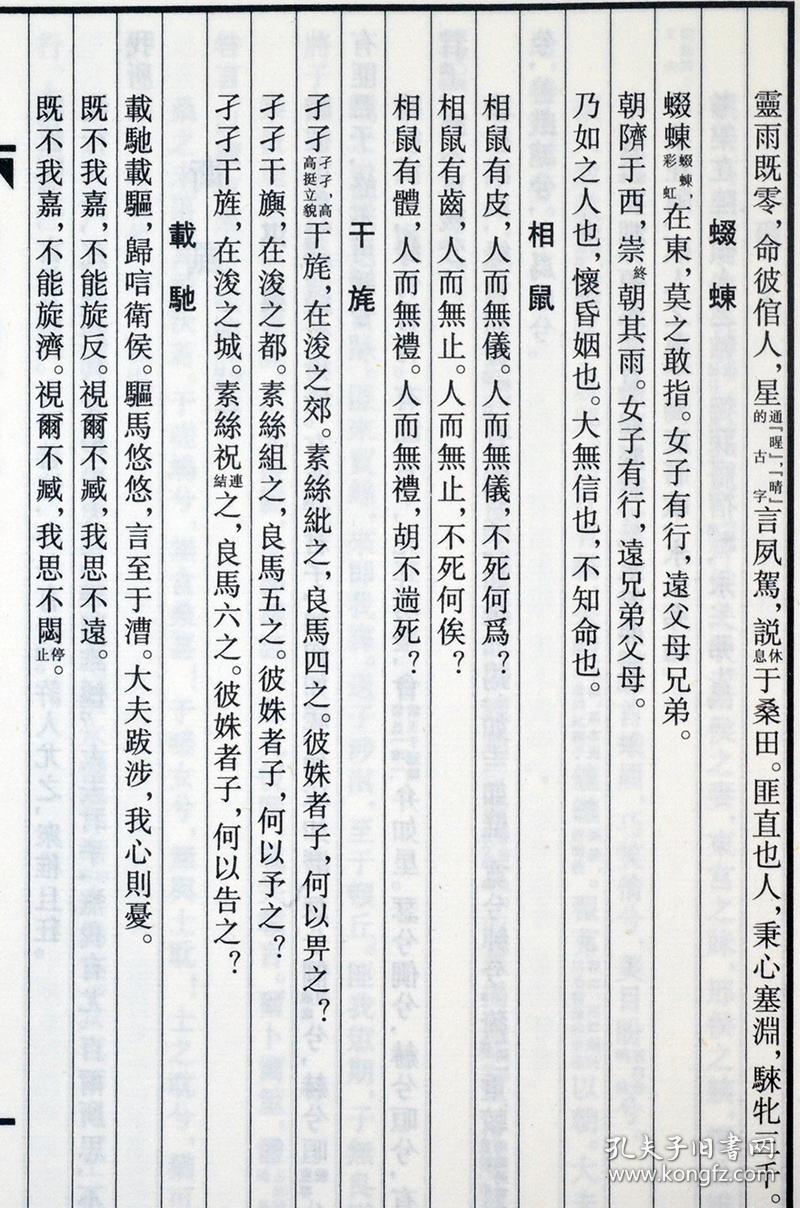 靈雨既零，命彼倌人，星通『暒』，『晴』的古字言夙駕，説休息于桑田。匪直也人，秉心塞淵，騋牝三千。
蝃蝀
蝃蝀蝃蝀，彩虹在東，莫之敢指。女子有行，遠父母兄弟。
朝隮于西，崇終朝其雨。女子有行，遠兄弟父母。
乃如之人也，懷昏姻也。大無信也，不知命也。
相鼠
相鼠有皮，人而無儀。人而無儀，不死何爲？
相鼠有齒，人而無止。人而無止，不死何俟？
相鼠有體，人而無禮。人而無禮，胡不遄死？
干旄
孑孑孑孑，高高挺立貌干旄，在浚之郊。素絲紕之，良馬四之。彼姝者子，何以畀之？
孑孑干旟，在浚之都。素絲組之，良馬五之。彼姝者子，何以予之？
孑孑干旌，在浚之城。素絲祝連結之，良馬六之。彼姝者子，何以告之？
載馳
載馳載驅，歸唁衛侯。驅馬悠悠，言至于漕。大夫跋涉，我心則憂。
既不我嘉，不能旋反。視爾不臧，我思不遠。
既不我嘉，不能旋濟。視爾不臧，我思不閟停止。
孔夫子旧书网
www.kongfz.com